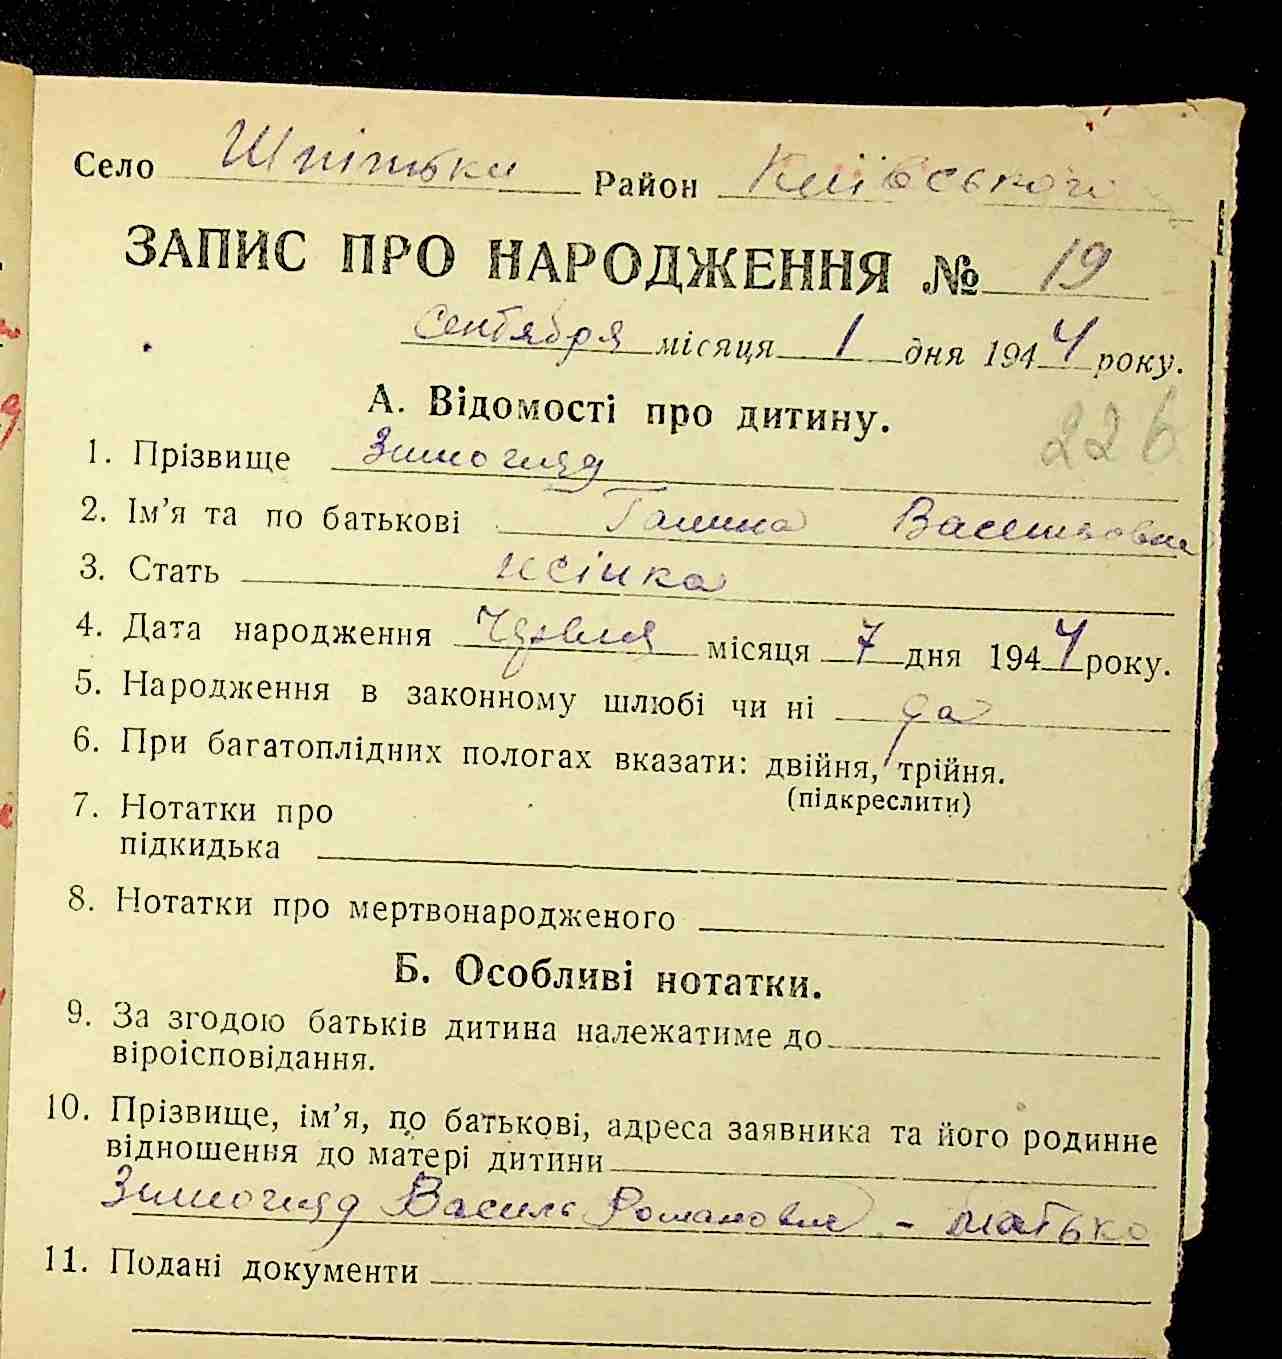 Село Шпітьки Район Київського
ЗАПИС ПРО НАРОДЖЕННЯ № 19
Сентября місяця 1 дня 1944 року.
А. Відомості про дитину.
226
1. Прізвище Зимогляд
2. Ім’я та по батькові Галина Васильовна
3. Стать жінка
4. Дата народження Червня місяця 7 дня 1944 року.
5. Народження в законному шлюбі чи ні да
6. При багатоплідних пологах вказати: двійня, трійня.
(підкреслити)
7. Нотатки про
підкидька
8. Нотатки про мертвонародженого
Б. Особливі нотатки.
9. За згодою батьків дитина належатиме до
віроісповідання.
10. Прізвище, ім’я, по батькові, адреса заявника та його родинне
відношення до матері дитини
Зимогляд Василь Романович - батько
11. Подані документи